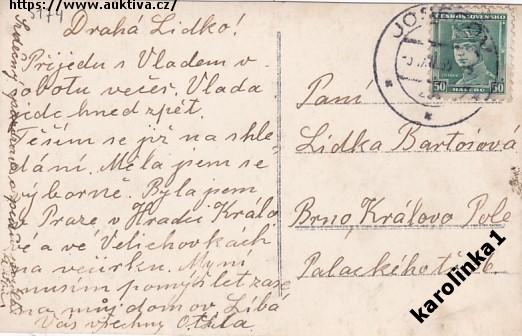 https://www.auktiva.cz/
5174
Drahá Lidko!
Přijedu s Vladem v
sobotu večer. Vlada
jede hned zpět.
Těším se již na shle-
dání. Měla jsem se
výborně. Byla jsem
v Praze v Hradci Králo
vé a ve Velichovkách
na večírku. Nyní
musím pomýšlet zase
na můj domov. Líbá
Vás všechny Othla.
Srdečný
JOS
ČESKOSLOVENSKO
50 HALÉŘŮ 50
Paní
Lidka Bartošová
Brno, Královo Pole
Palackého tř.
karolinka1